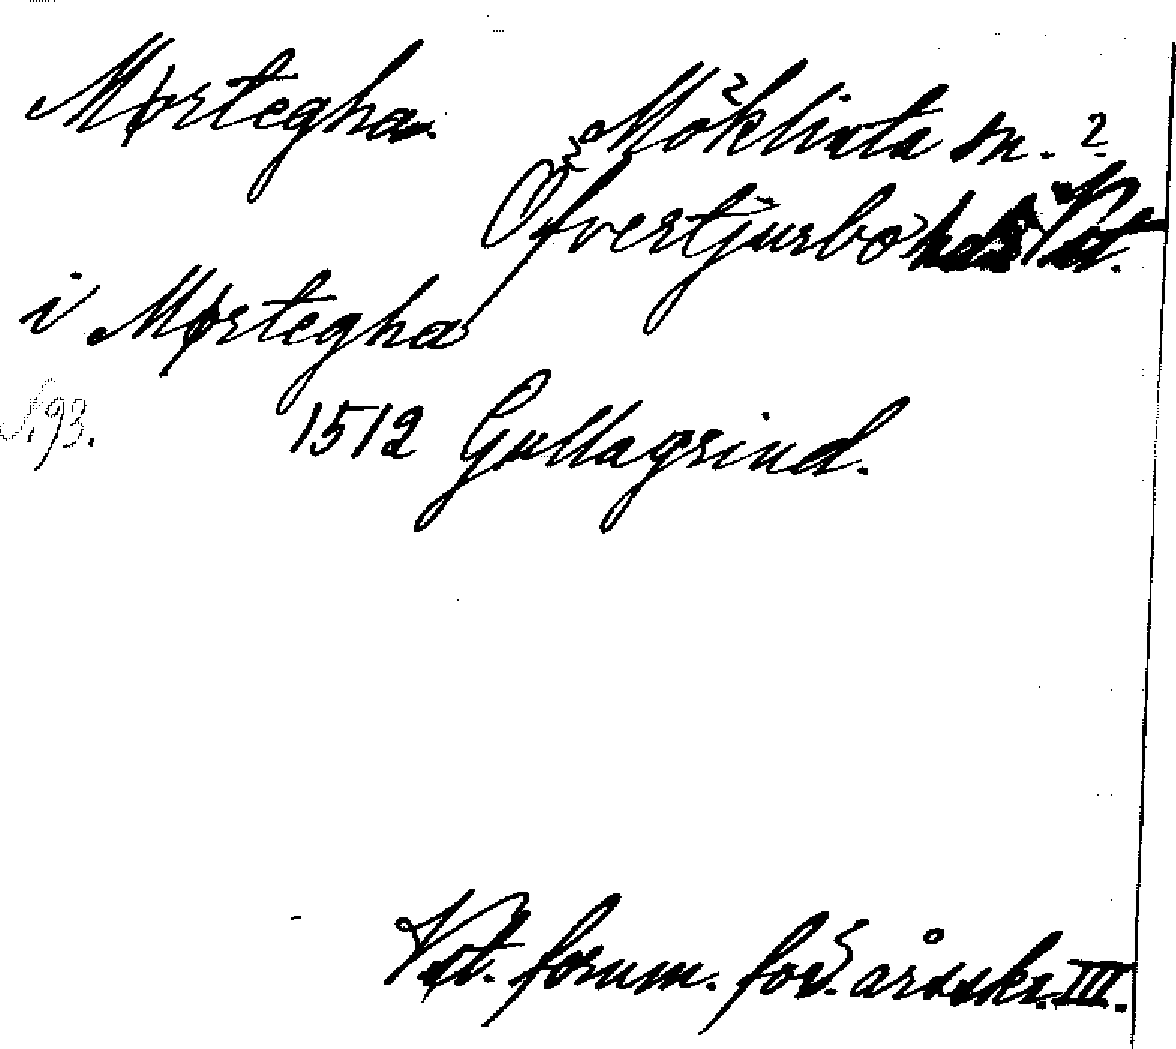 Mørtegha. Möklinta sn. ?
Öfvertjurbo hd. Vst.
i Mørtegha
N 93. 1512 Gullagrind.
Vst. fornm. för. årsskr. III.